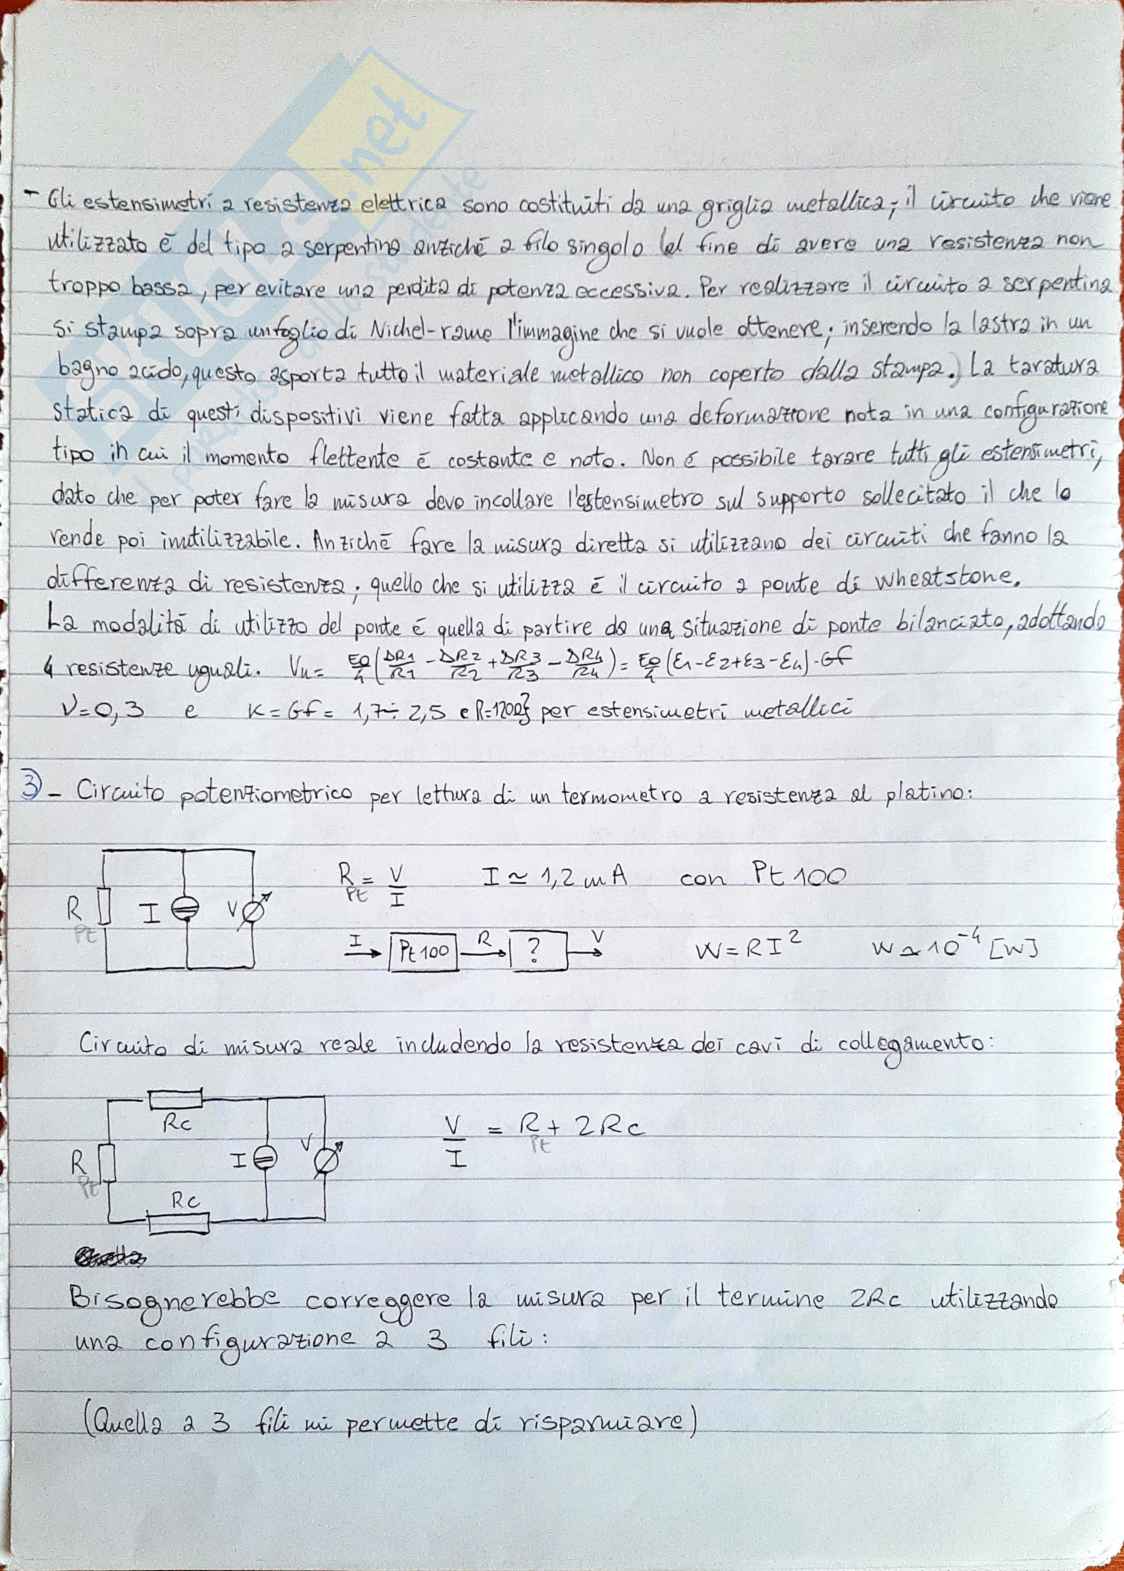 - Gli estensimetri a resistenza elettrica sono costituiti da una griglia metallica; il circuito che viene
utilizzato è del tipo a serpentina anziché a filo singolo (al fine di avere una resistenza non
troppo bassa, per evitare una perdita di potenza eccessiva. Per realizzare il circuito a serpentina
si stampa sopra un foglio di Nichel-rame l'immagine che si vuole ottenere; inserendo la lastra in un
bagno acido, questo asporta tutto il materiale metallico non coperto dalla stampa.) La taratura
statica di questi dispositivi viene fatta applicando una deformazione nota in una configurazione
tipo in cui il momento flettente è costante e noto. Non è possibile tarare tutti gli estensimetri,
dato che per poter fare la misura devo incollare l'estensimetro sul supporto sollecitato il che lo
rende poi inutilizzabile. Anziché fare la misura diretta si utilizzano dei circuiti che fanno la
differenza di resistenza; quello che si utilizza è il circuito a ponte di Wheatstone.
La modalità di utilizzo del ponte è quella di partire da una situazione di ponte bilanciato, adottando
4 resistenze uguali. Vu = E0/4 (ΔR1/R1 - ΔR2/R2 + ΔR3/R3 - ΔR4/R4) = E0/4 (ε1-ε2+ε3-ε4)·Gf
ν=0,3 e K=Gf= 1,7÷2,5 e R=120Ω} per estensimetri metallici
3 - Circuito potenziometrico per lettura di un termometro a resistenza al platino:
R Pt I V
R Pt = V/I I ≃ 1,2 mA con Pt 100
I → Pt 100 R → ? V → W = RI² W ≃ 10⁻⁴ [W]
Circuito di misura reale includendo la resistenza dei cavi di collegamento:
Rc
R Pt I V
Rc
V/I = R Pt + 2Rc
Bisognerebbe correggere la misura per il termine 2Rc utilizzando
una configurazione a 3 fili:
(Quella a 3 fili mi permette di risparmiare)